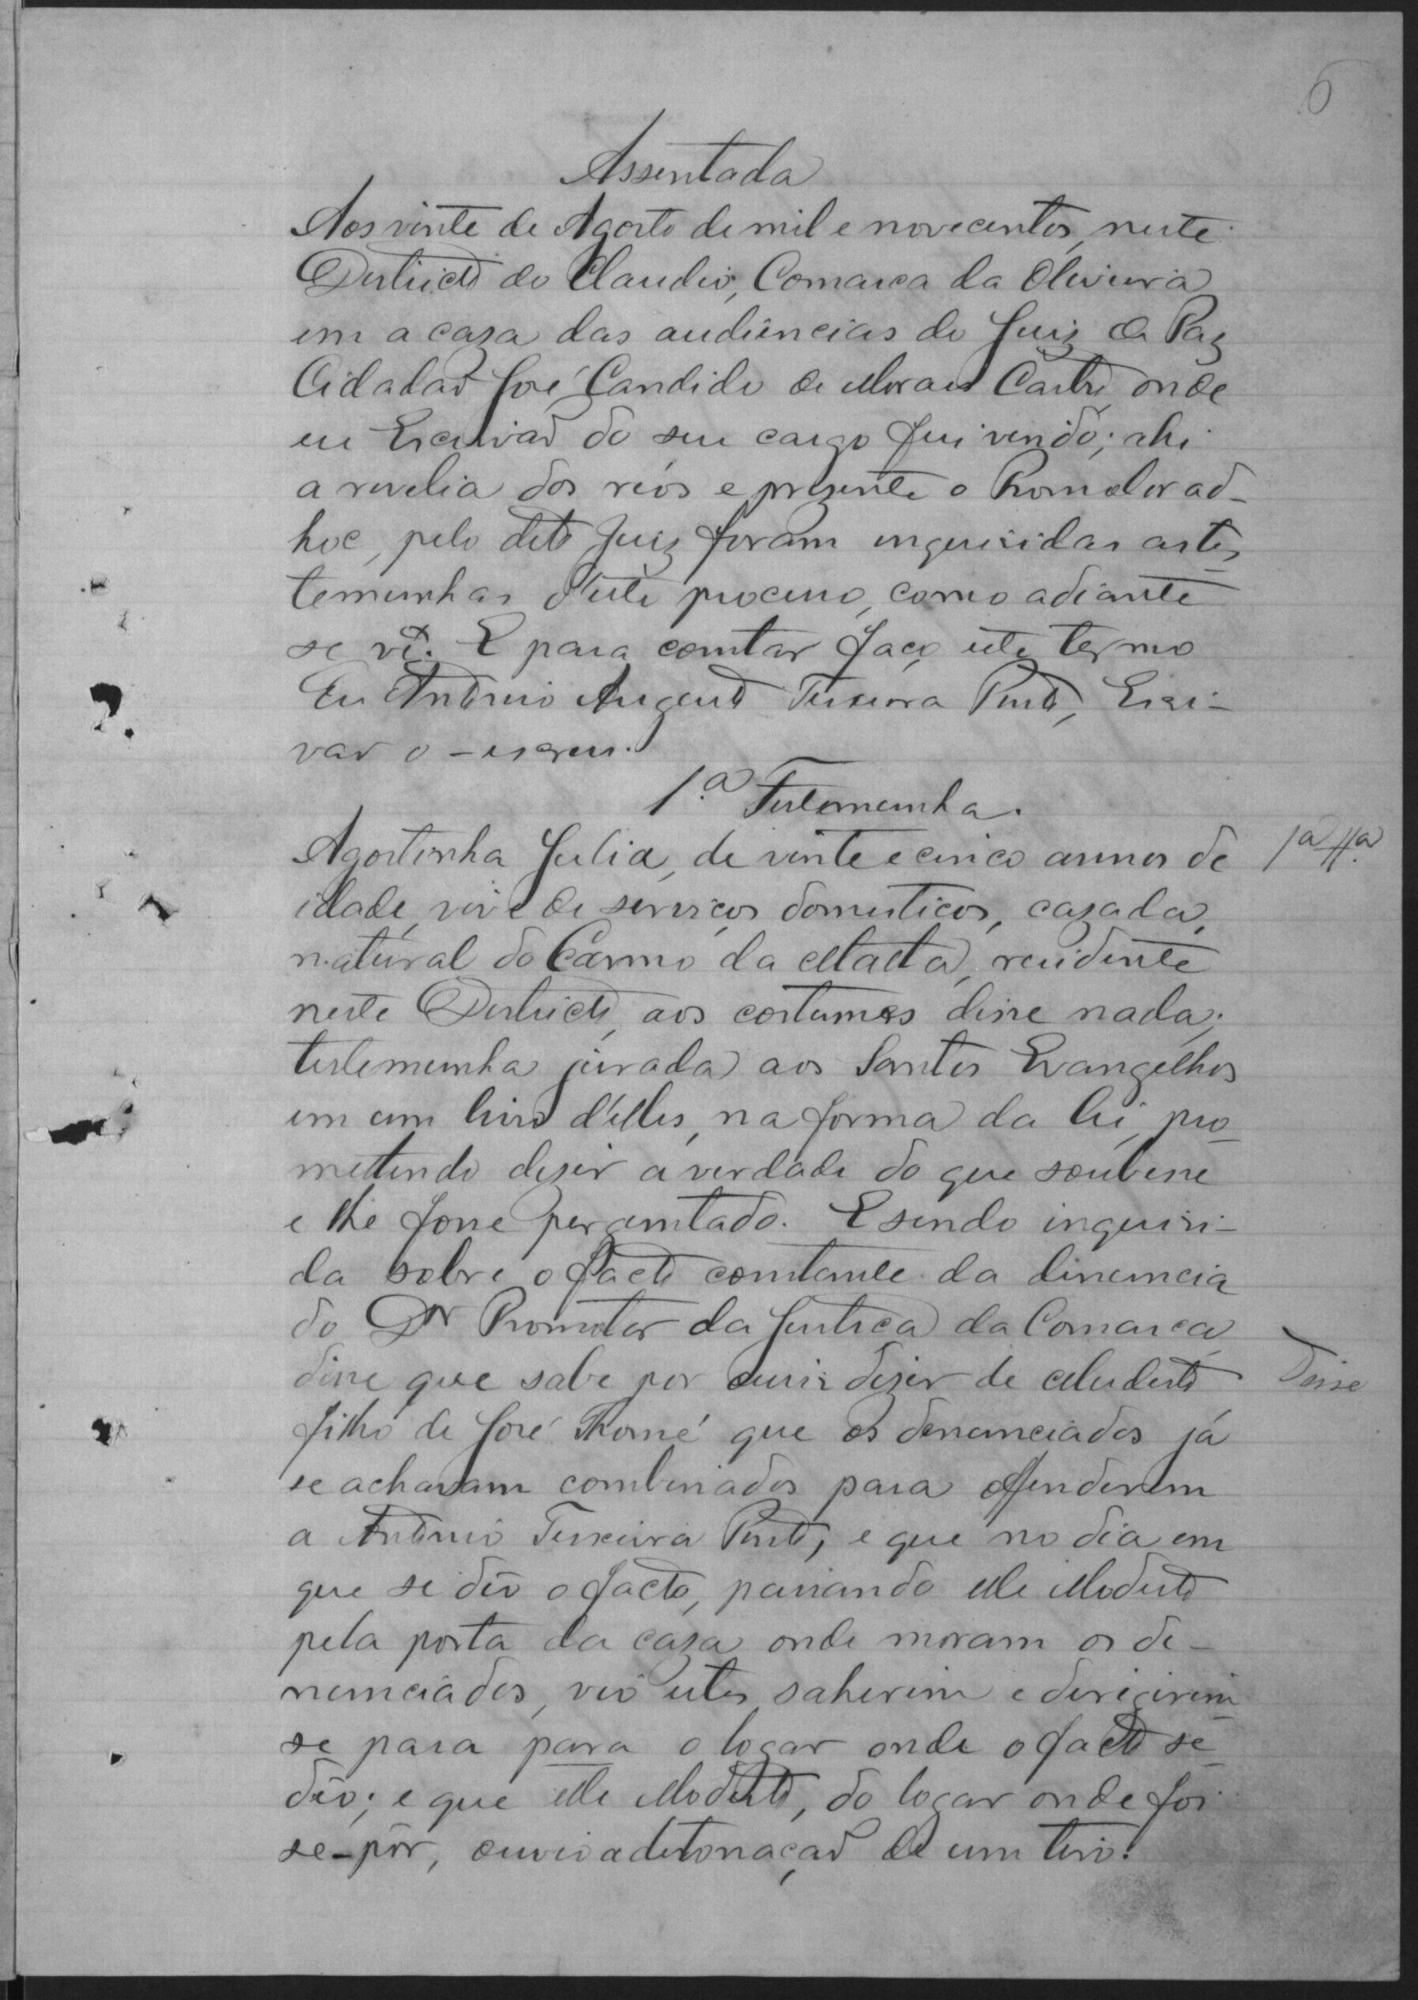 6
Assentada
Aos vinte de Agosto de mil e novecentos, neste
Districto do Claudio, Comarca da Oliveira
em a caza das audiências do Juiz de Paz
Cidadaõ José Candido de Moraes Castro, onde
eu Escrivaõ do seu cargo fui vindo; ahi
a revelia dos réos e prezente o Promotor ad-
hoc, pelo dito Juiz foram inqueridas as tes-
temunhas d'este processo, como adiante
se vê. E para constar faço este termo
Eu Antonio Augusto Teixeira Pinto, Escri-
vaõ o-escrevi.
1.a Testemunha.
Agostinha Julia, de vinte e cinco annos de
idade, vive de serviços domesticos, cazada,
natural do Carmo da Matta, residente
neste Districto, aos costumes disse nada;
testemunha jurada aos Santos Evangelhos
em um livro d'elles, na forma da lei, pro-
mettendo dizer a verdade do que soubesse
e lhe fosse perguntado. E sendo inqueri-
da sobre o facto constante da denuncia
do Dr Promotor da Justiça da Comarca
disse que sabe por ouvir dizer de Modesto
filho de José Thomé que os denunciados já
se achavam combinados para offenderem
a Antonio Teixeira Pinto, e que no dia em
que se dêo o facto, passando elle Modesto
pela porta da caza onde moram os de-
nunciados, vio estes saherem e derigirem-
se para para o logar onde o facto se
dêo; e que elle Modesto, do logar onde foi
se-pôr, ouvio a detonaçaõ de um tiro.
1a Ta
Disse